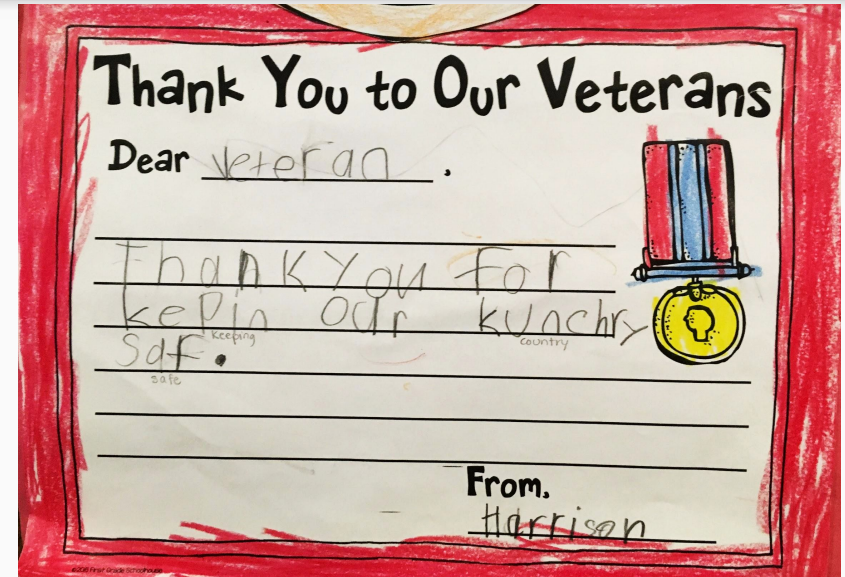 Thank You to Our Veterans
Dear Veteran,
Thank You for
kepin our kunchry
keeping country
saf.
safe
From,
Harrison
©2015 First Grade Schoolhouse